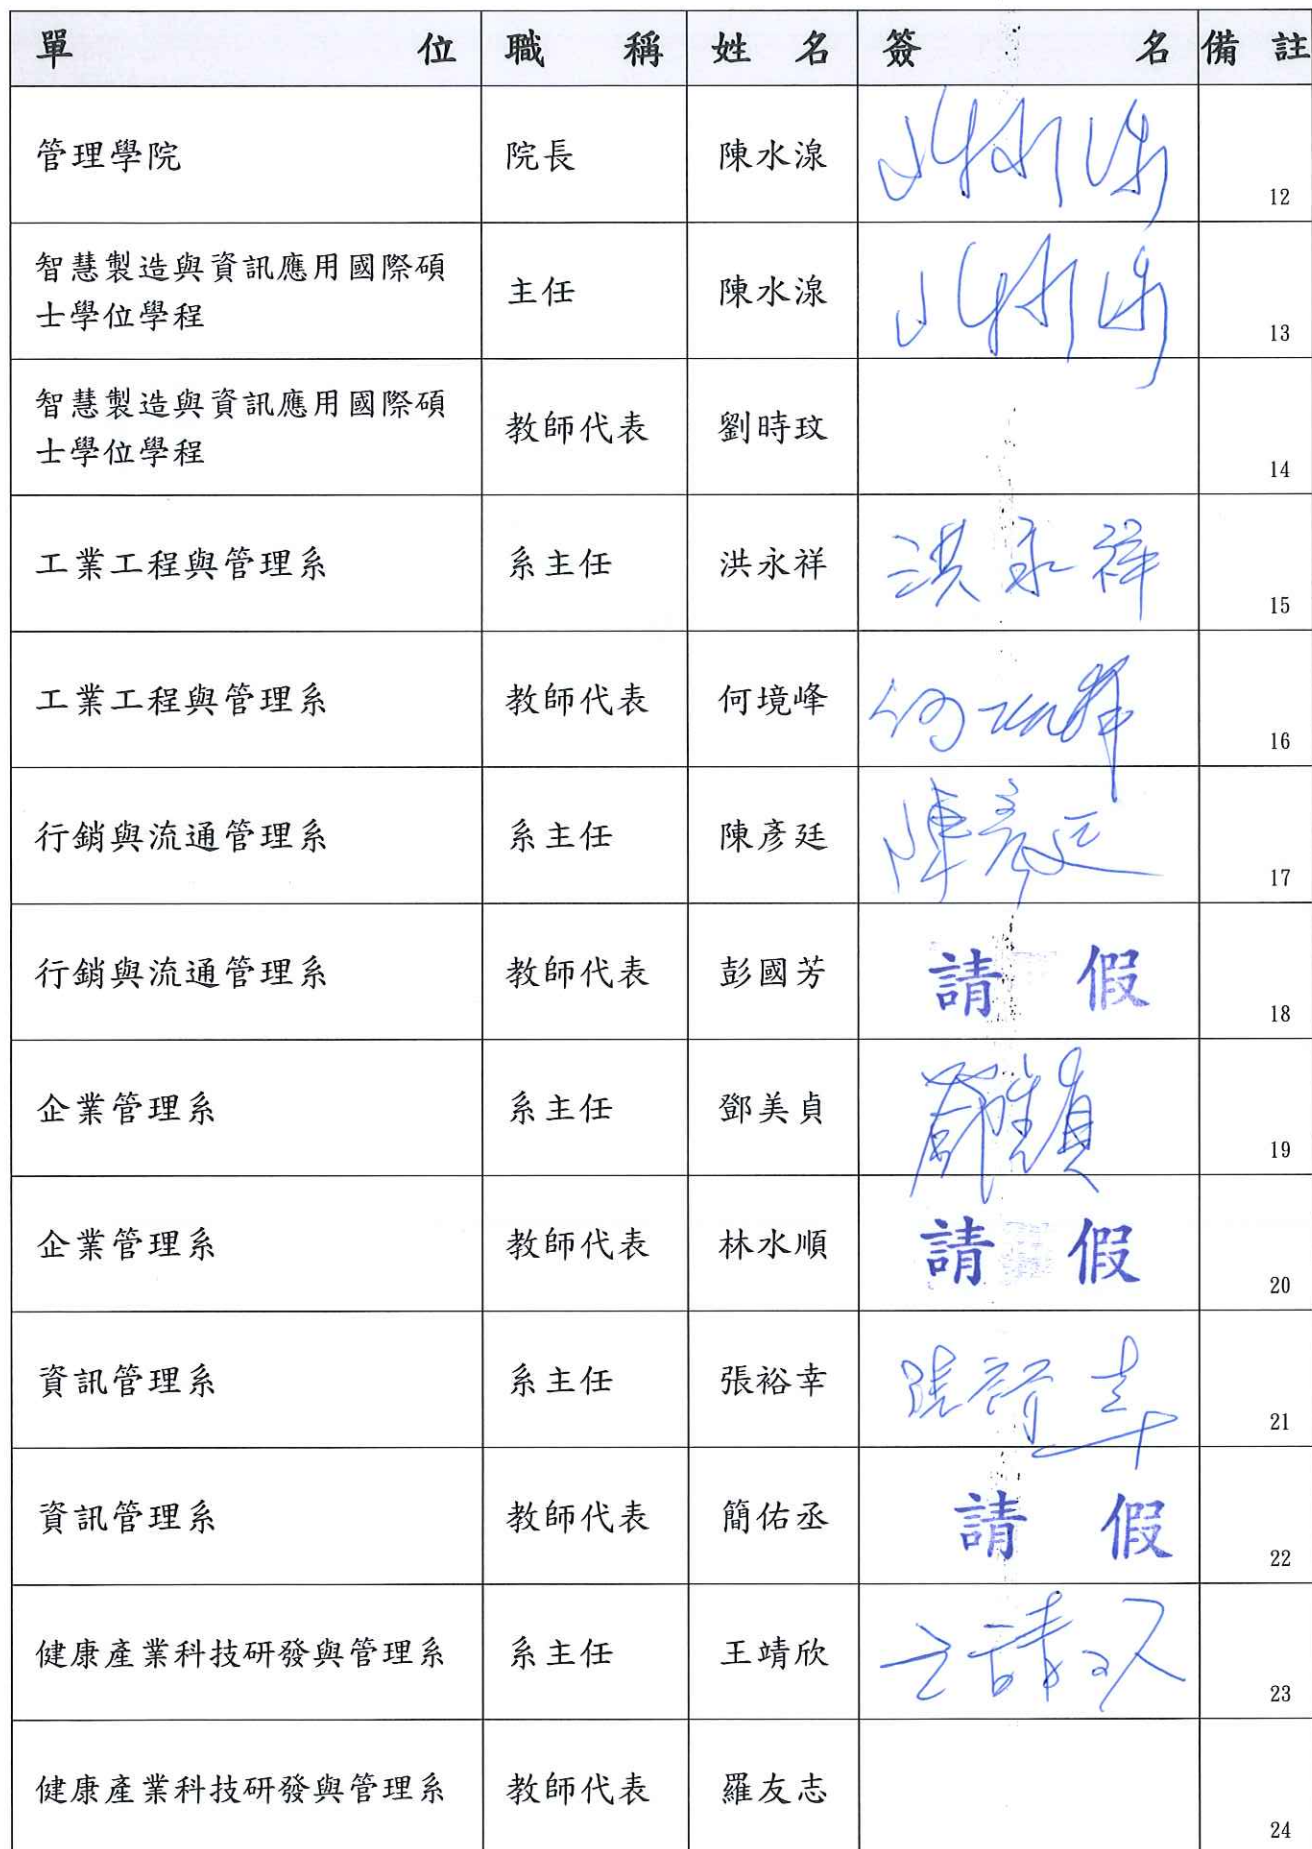 單位 職稱 姓名 簽名 備註
管理學院 院長 陳水湶 12
智慧製造與資訊應用國際碩
士學位學程 主任 陳水湶 13
智慧製造與資訊應用國際碩
士學位學程 教師代表 劉時玟 14
工業工程與管理系 系主任 洪永祥 洪永祥 15
工業工程與管理系 教師代表 何境峰 16
行銷與流通管理系 系主任 陳彥廷 陳彥廷 17
行銷與流通管理系 教師代表 彭國芳 請假 18
企業管理系 系主任 鄧美貞 鄧美貞 19
企業管理系 教師代表 林水順 請假 20
資訊管理系 系主任 張裕幸 張裕幸 21
資訊管理系 教師代表 簡佑丞 請假 22
健康產業科技研發與管理系 系主任 王靖欣 王靖欣 23
健康產業科技研發與管理系 教師代表 羅友志 24